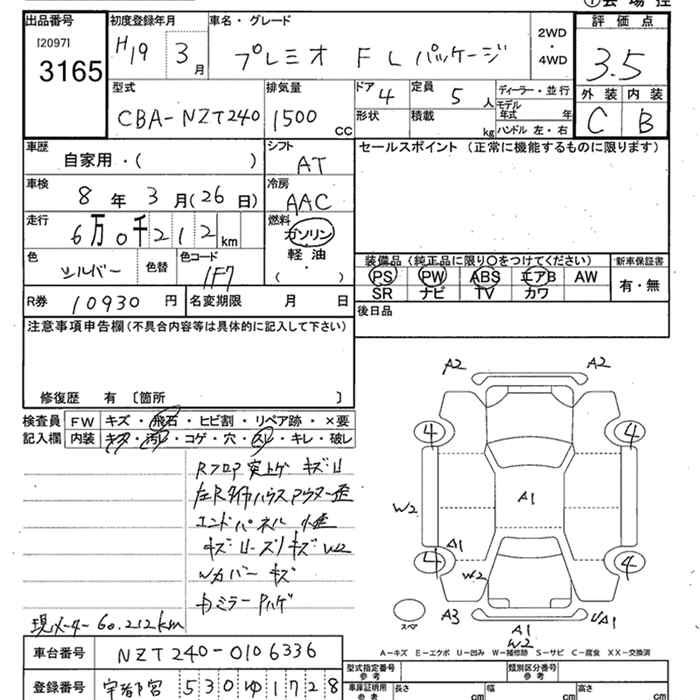 出品番号 初度登録年月 車名・グレード 2WD・4WD 評価点
[2097]
3165 H19 3月 プレミオ FLパッケージ 3.5
型式 排気量 ドア 4 定員 5人 ディーラー・並行 外装 内装
CBA-NZT240 1500cc 形状 積載 kg モデル年式 年 C B
ハンドル 左・右
車歴 シフト セールスポイント (正常に機能するものに限ります)
自家用・( ) AT
車検 8年3月(26日) 冷房 AAC
走行 6万0千212km 燃料 ガソリン
軽油
( ・ )
色 シルバー 色替 色コード 1F7
装備品(純正品に限り○をつけてください) 新車保証書
PS PW ABS エアB AW 有・無
SR ナビ TV カワ
R券 10930円 名変期限 月 日 後日品
注意事項申告欄(不具合内容等は具体的に記入して下さい)
修復歴 有 〔箇所 〕
検査員 FW キズ・飛石・ヒビ割・リペア跡・×要
記入欄 内装 キズ・汚レ・コゲ・穴・スレ・キレ・破レ
Rフロア 突上ゲ キズU
左Rタイヤハウス アウター歪
エンドパネル 小歪
キズ W2
Wカバー キズ
現メーター 60.212km
A2 A2
4 4
W2 A1
A1
W2
4 4
A3 A1 UA1
W2
スペア
A-キズ E-エクボ U-凹み W-補修跡 S-サビ C-腐食 XX-交換済
車台番号 NZT240-0106336
登録番号 宇都宮 530 ゆ 1728
型式指定番号 参考 類別区分番号 参考
車庫証明用 参考 長さ cm 幅 cm 高さ cm